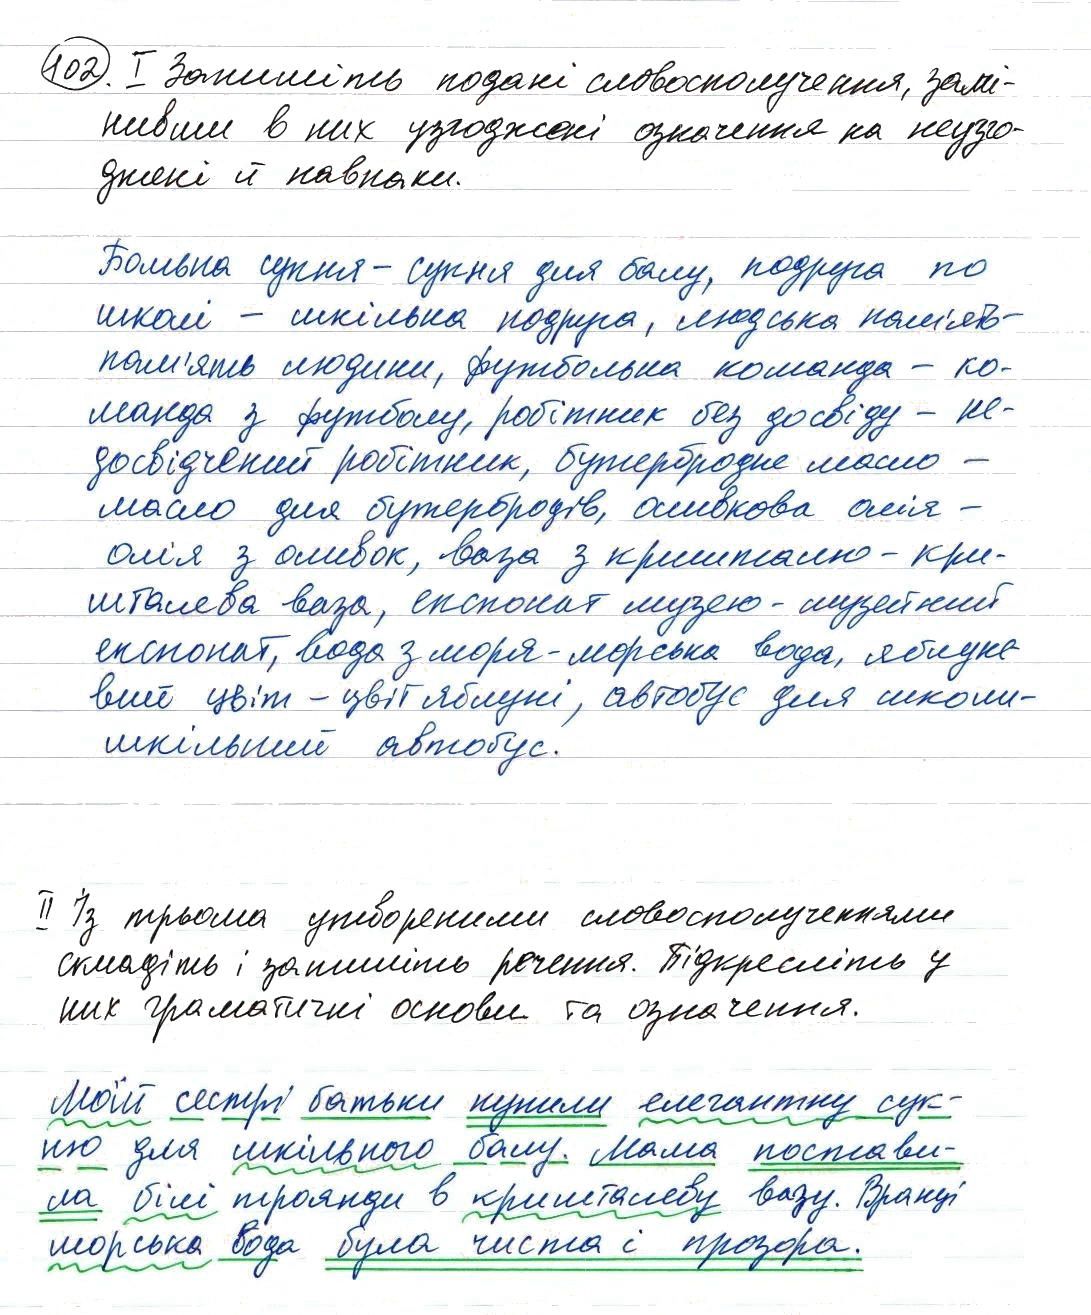 102. I Запишіть подані словосполучення, замі-
нивши в них узгоджені означення на неузго-
джені й навпаки.
Бальна сукня - сукня для балу, подруга по
школі - шкільна подруга, людська пам'ять-
пам'ять людини, футбольна команда - ко-
манда з футболу, робітник без досвіду - не-
досвідчений робітник, бутербродне масло -
масло для бутербродів, оливкова олія -
олія з оливок, ваза з кришталю - кри-
шталева ваза, експонат музею - музейний
експонат, вода з моря - морська вода, яблуне
вий цвіт - цвіт яблуні, автобус для школи-
шкільний автобус.
II Із трьома утвореними словосполученнями
складіть і запишіть речення. Підкресліть у
них граматичні основи та означення.
Моїй сестрі батьки купили елегантну сук-
ню для шкільного балу. Мама постави-
ла білі троянди в кришталеву вазу. Вранці
морська вода була чиста і прозора.